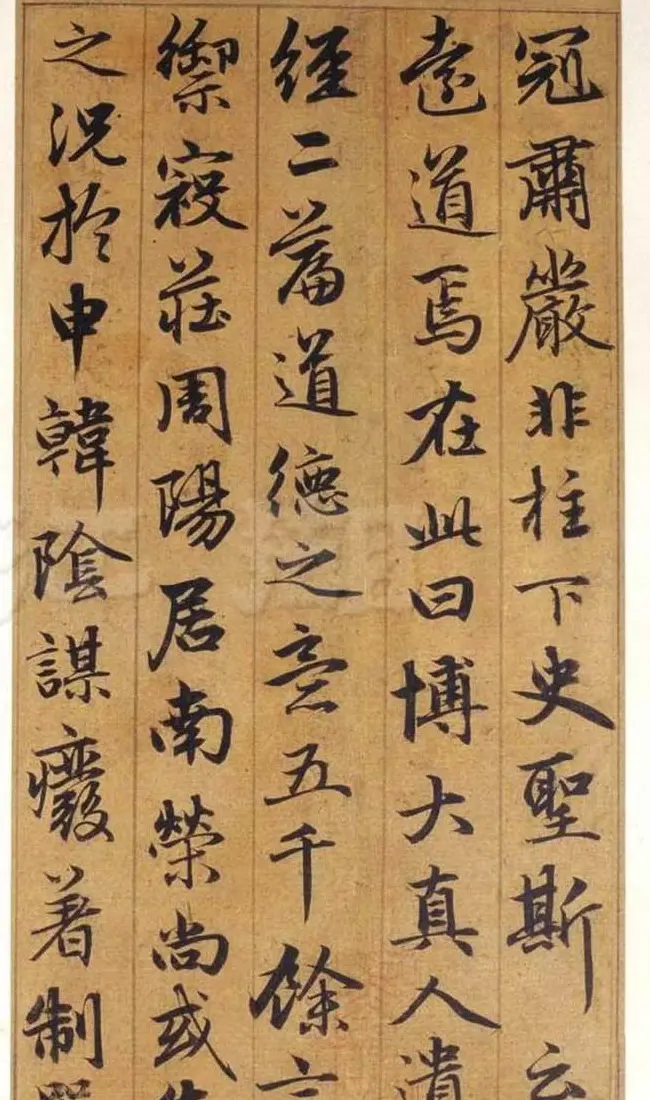 冠肅嚴非柱下史聖斯云
遠道焉在此曰博大真人遺
經二篇道德之意五千餘言
禦寇莊周陽居南榮尚或
之況於申韓陰謀廢著制